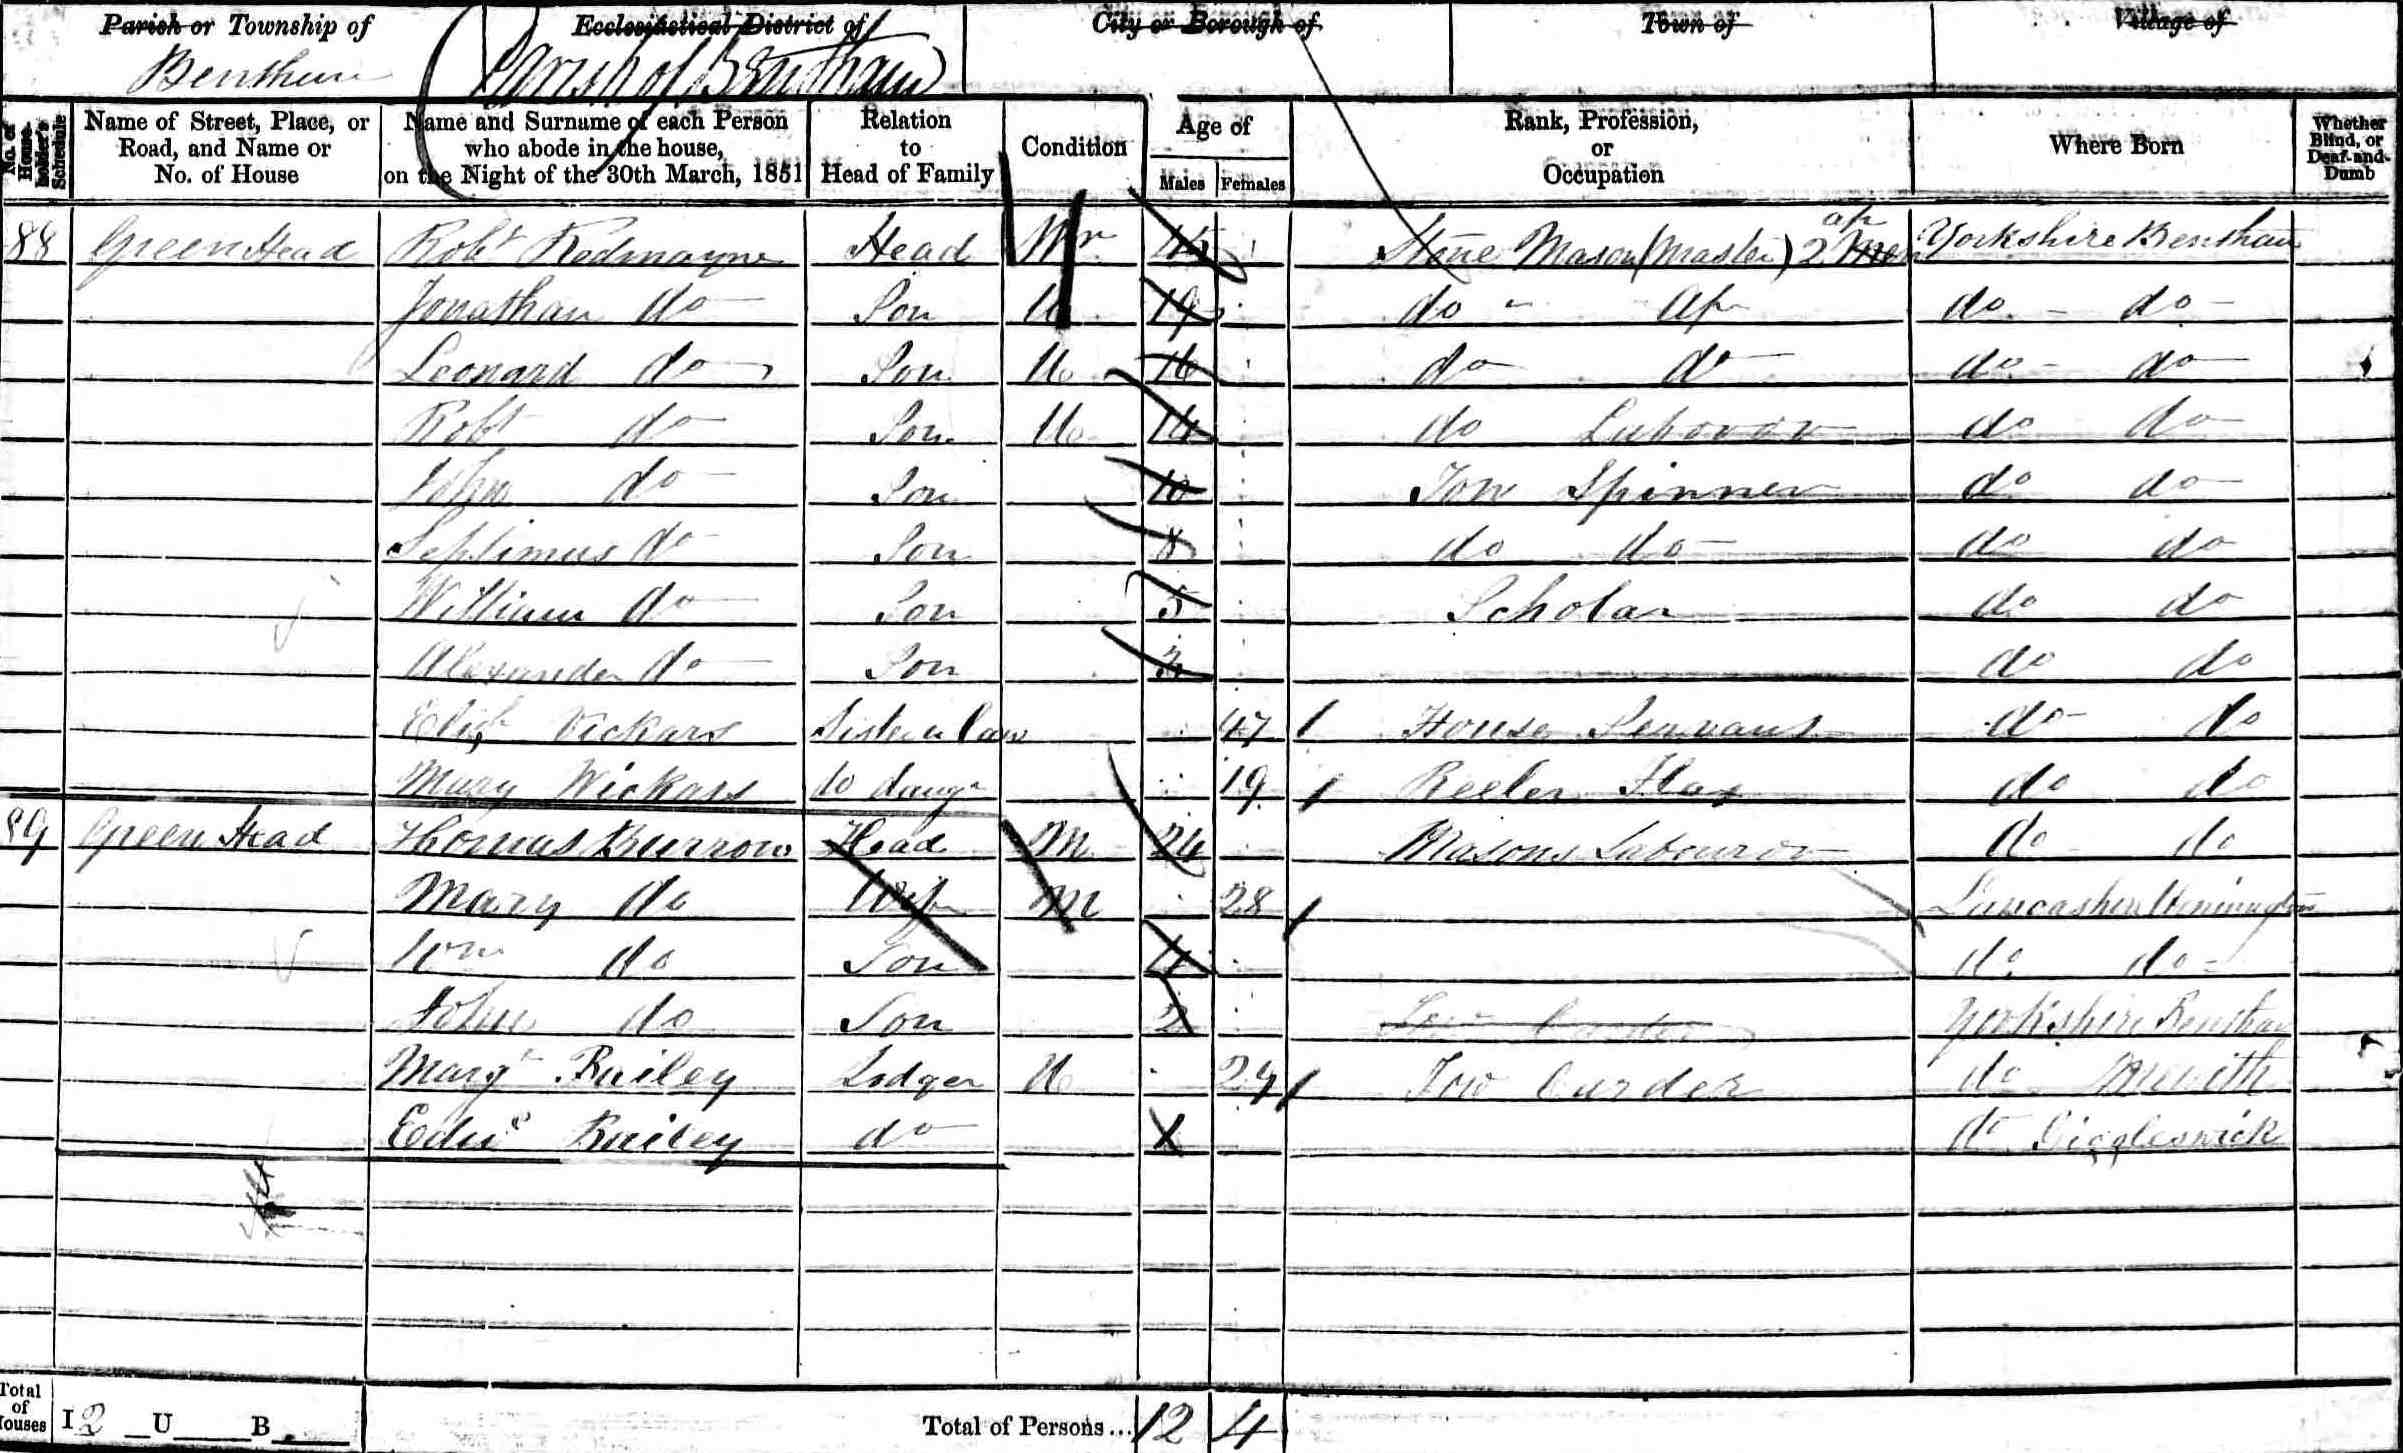 Parish or Township of Ecclesiastical District of City or Borough of Town of Village of
Bentham (Parish of Bentham)
No. of House-holder's Schedule Name of Street, Place, or Road, and Name or No. of House Name and Surname of each Person who abode in the house, on the Night of the 30th March, 1851 Relation to Head of Family Condition Age of Males Females Rank, Profession, or Occupation Where Born Whether Blind, or Deaf-and-Dumb
88 Green Head Robt Redmayne Head Wr 45 Stone Mason (Master) 2 Men ap Yorkshire Bentham
Jonathan do Son U 19 do Ap do do
Leonard do Son U 16 do do do do
Robt do Son U 14 do Labourer do do
John do Son 10 Tow Spinner do do
Septimus do Son 8 do do do do
William do Son 5 Scholar do do
Alexander do Son do do
Elizh Vickars Sister n law 47 House Servant do do
Mary Wickars do daugr 19 Reeler Flax do do
89 Green Head Thomas Burrow Head M 24 Masons Labourer do do
Mary do Wife M 28 Lancashire
Wm do Son 4 do do
John do Son 2 Tow Carder Yorkshire Bentham
Margt Bailey Lodger U Tow Carder do
Edwd Bailey do 1 do Giggleswick
Total of Houses I 2 U B Total of Persons... 12 4